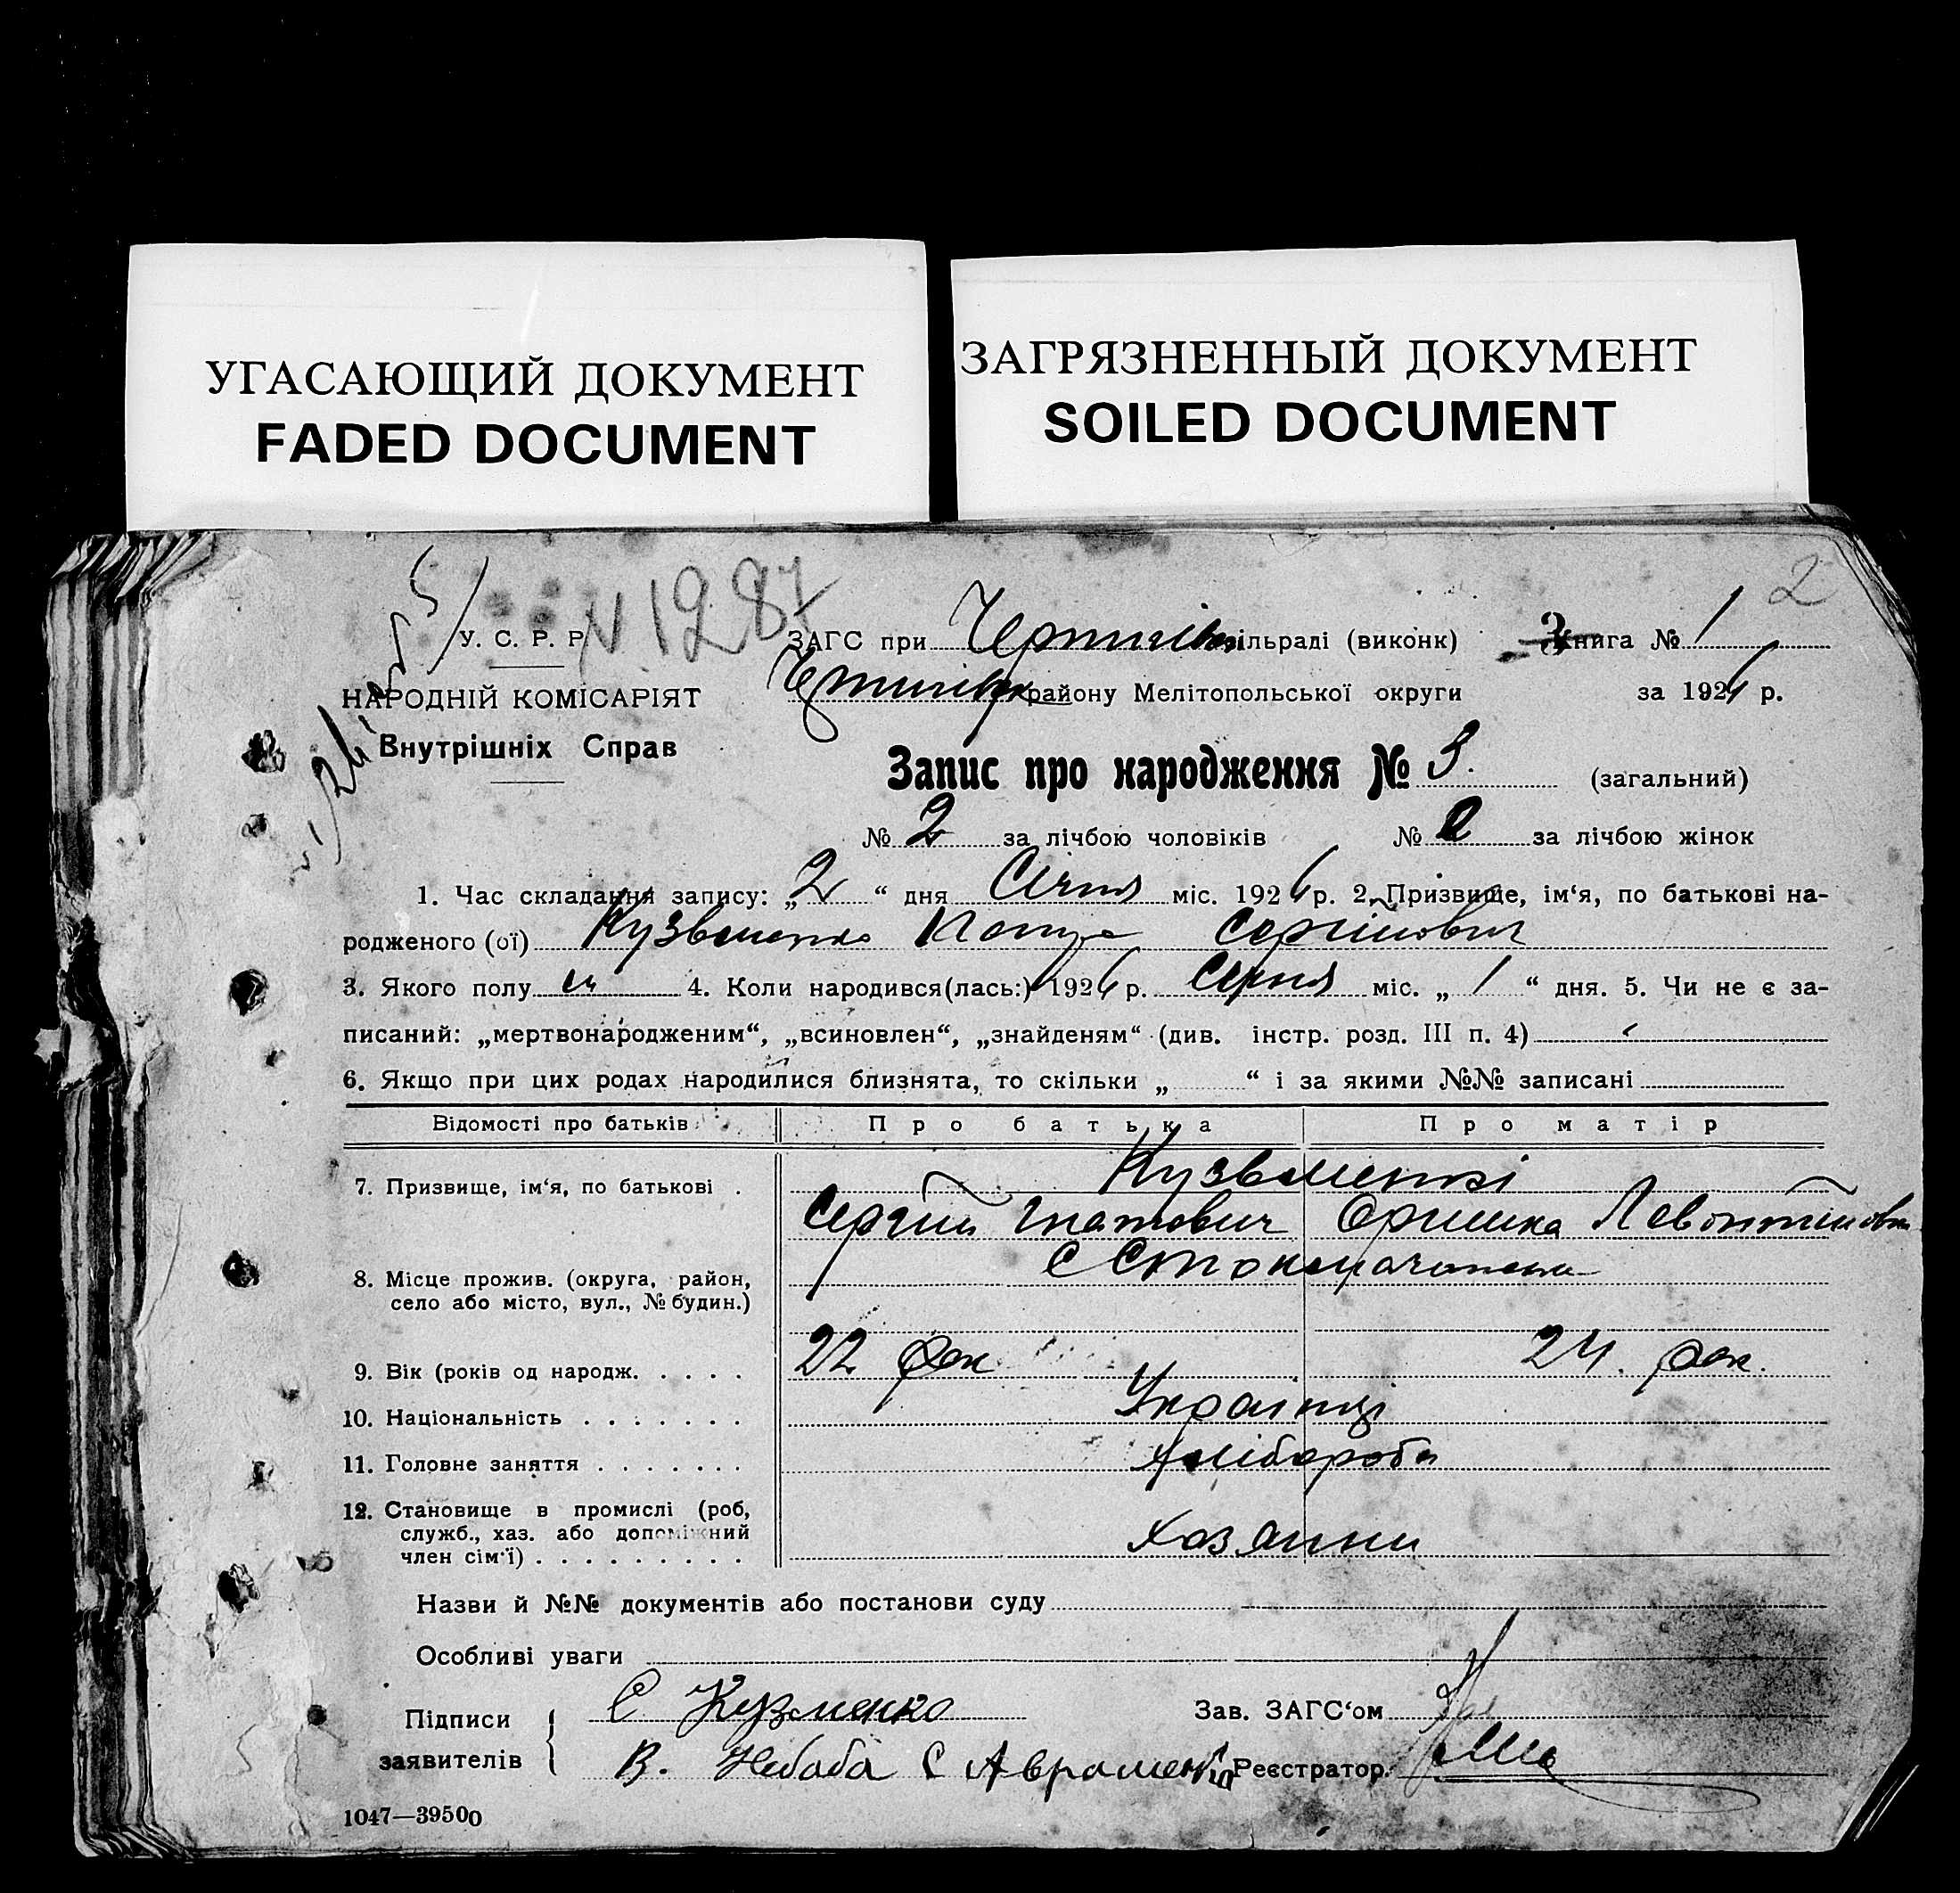 УГАСАЮЩИЙ ДОКУМЕНТ
FADED DOCUMENT
ЗАГРЯЗНЕННЫЙ ДОКУМЕНТ
SOILED DOCUMENT
2
N 1287
У. С. Р. Р.
НАРОДНІЙ КОМІСАРІЯТ
Внутрішніх Справ
ЗАГС при сільраді (виконк) Книга № 1
району Мелітопольської округи за 1926 р.
Запис про народження № 3. (загальний)
№ 2 за лічбою чоловіків № за лічбою жінок
1. Час складання запису: „ 2 “ дня Січня міс. 1926 р. 2. Призвище, ім‘я, по батькові на-
родженого (ої) Кузьменко Сергійович
3. Якого полу ч 4. Коли народився(лась:) 1926 р. Січня міс. „ 1 “ дня. 5. Чи не є за-
писаний: „мертвонародженим“, „всиновлен“, „знайденям“ (див. інстр. розд. III п. 4)
6. Якщо при цих родах народилися близнята, то скільки „ “ і за якими №№ записані
Відомості про батьків Про батька Про матір
7. Призвище, ім‘я, по батькові . Кузьменкі
Сергій Гнатович Оришка Левонтіовн
8. Місце прожив. (округа, район,
село або місто, вул., № будин.)
9. Вік (років од народж. . . . . 22 рок 24. рок.
10. Національність . . . . . . . Українці
11. Головне заняття . . . . . . . Хлібороби
12. Становище в промислі (роб,
служб., хаз. або допоміжний
член сім‘ї) . . . . . . . . . Хазяини
Назви й №№ документів або постанови суду
Особливі уваги
Підписи С Кузменко Зав. ЗАГС‘ом
заявителів В. Небаба С Авраменко Реєстратор.
1047—39500